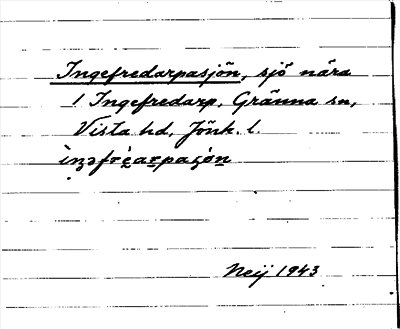 Ingefredarpasjön, sjö nära
1 Ingefredarp, Gränna sn,
Vista hd, Jönk. l.
Neij 1943